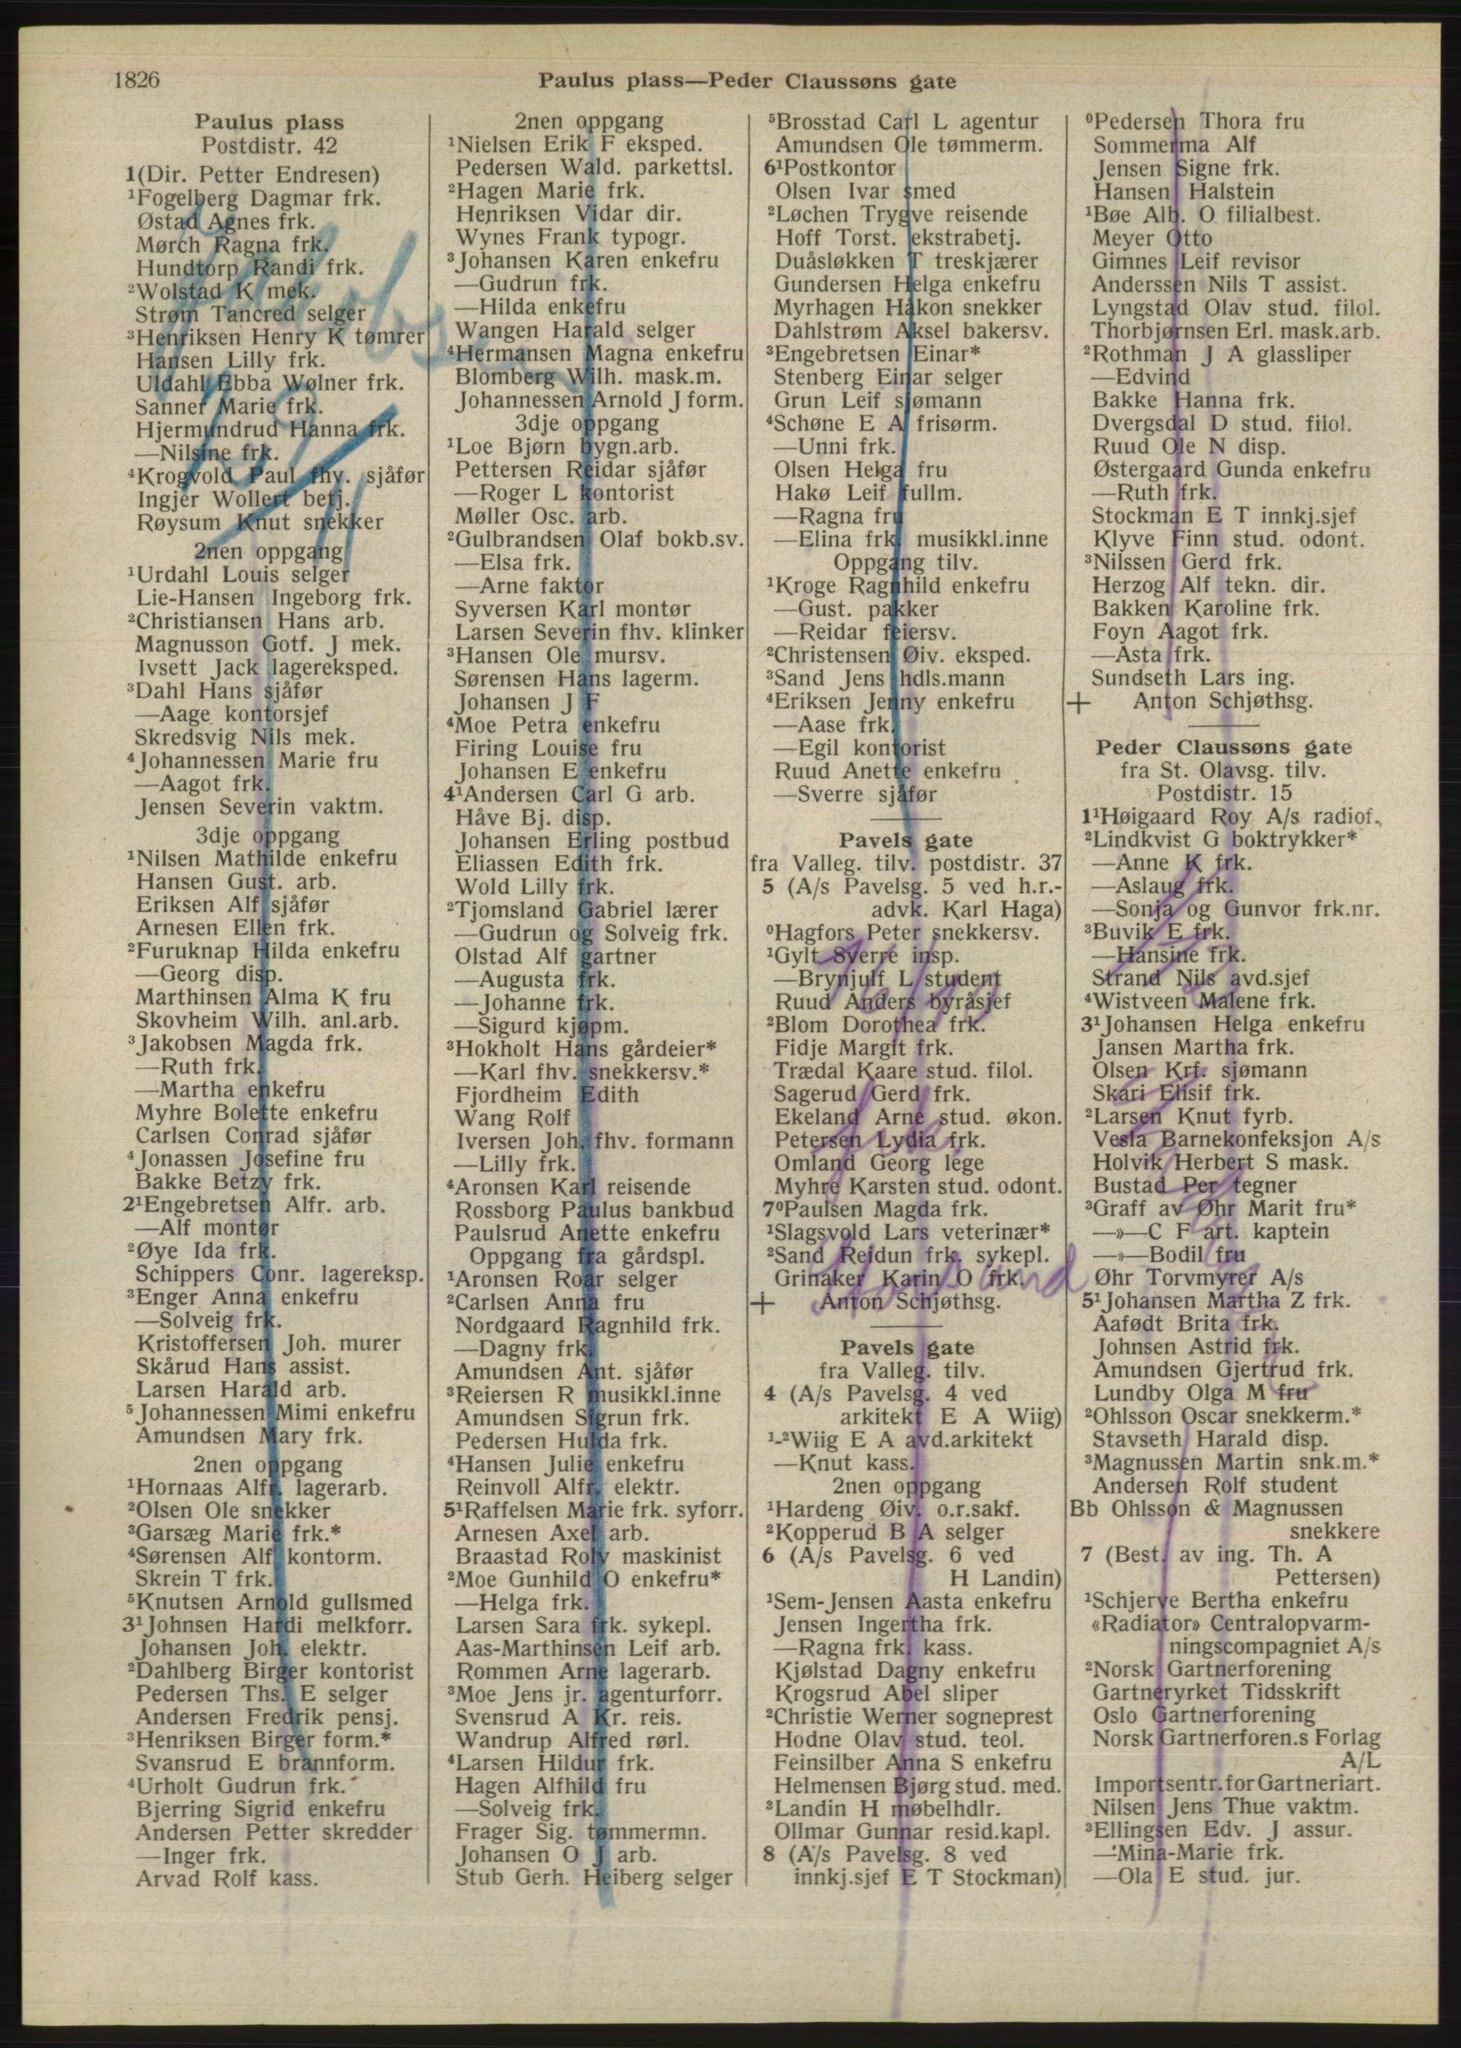 1826
Paulus plass—Peder Claussøns gate
Paulus plass
Postdistr. 42
1(Dir. Petter Endresen)
¹Fogelberg Dagmar frk.
Østad Agnes frk.
Mørch Ragna frk.
Hundtorp Randi frk.
²Wolstad K mek.
Strøm Tancred selger
³Henriksen Henry K tømrer
Hansen Lilly frk.
Uldahl Ebba Wølner frk.
Sanner Marie frk.
Hjermundrud Hanna frk.
—Nilsine frk.
⁴Krogvold Paul fhv. sjåfør
Ingjer Wollert betj.
Røysum Knut snekker
2nen oppgang
¹Urdahl Louis selger
Lie-Hansen Ingeborg frk.
²Christiansen Hans arb.
Magnusson Gotf. J mek.
Ivsett Jack lagereksped.
³Dahl Hans sjåfør
—Aage kontorsjef
Skredsvig Nils mek.
⁴Johannessen Marie fru
—Aagot frk.
Jensen Severin vaktm.
3dje oppgang
¹Nilsen Mathilde enkefru
Hansen Gust. arb.
Eriksen Alf sjåfør
Arnesen Ellen frk.
²Furuknap Hilda enkefru
—Georg disp.
Marthinsen Alma K fru
Skovheim Wilh. anl.arb.
³Jakobsen Magda frk.
—Ruth frk.
—Martha enkefru
Myhre Bolette enkefru
Carlsen Conrad sjåfør
⁴Jonassen Josefine fru
Bakke Betzy frk.
2¹Engebretsen Alfr. arb.
—Alf montør
²Øye Ida frk.
Schippers Conr. lagereksp.
³Enger Anna enkefru
—Solveig frk.
Kristoffersen Joh. murer
Skårud Hans assist.
Larsen Harald arb.
⁵Johannessen Mimi enkefru
Amundsen Mary frk.
2nen oppgang
¹Hornaas Alfr. lagerarb.
²Olsen Ole snekker
³Garsæg Marie frk.*
⁴Sørensen Alf kontorm.
Skrein T frk.
⁵Knutsen Arnold gullsmed
3¹Johnsen Hardi melkforr.
Johansen Joh. elektr.
²Dahlberg Birger kontorist
Pedersen Ths. E selger
Andersen Fredrik pensj.
³Henriksen Birger form.*
Svansrud E brannform.
⁴Urholt Gudrun frk.
Bjerring Sigrid enkefru
Andersen Petter skredder
—Inger frk.
Arvad Rolf kass.
2nen oppgang
¹Nielsen Erik F eksped.
Pedersen Wald. parkettsl.
²Hagen Marie frk.
Henriksen Vidar dir.
Wynes Frank typogr.
³Johansen Karen enkefru
—Gudrun frk.
—Hilda enkefru
Wangen Harald selger
⁴Hermansen Magna enkefru
Blomberg Wilh. mask.m.
Johannessen Arnold J form.
3dje oppgang
¹Loe Bjørn bygn.arb.
Pettersen Reidar sjåfør
—Roger L kontorist
Møller Osc. arb.
²Gulbrandsen Olaf bokb.sv.
—Elsa frk.
—Arne faktor
Syversen Karl montør
Larsen Severin fhv. klinker
³Hansen Ole mursv.
Sørensen Hans lagerm.
Johansen J F
⁴Moe Petra enkefru
Firing Louise fru
Johansen E enkefru
4¹Andersen Carl G arb.
Håve Bj. disp.
Johansen Erling postbud
Eliassen Edith frk.
Wold Lilly frk.
²Tjomsland Gabriel lærer
—Gudrun og Solveig frk.
Olstad Alf gartner
—Augusta frk.
—Johanne frk.
—Sigurd kjøpm.
³Hokholt Hans gårdeier*
—Karl fhv. snekkersv.*
Fjordheim Edith
Wang Rolf
Iversen Joh. fhv. formann
—Lilly frk.
⁴Aronsen Karl reisende
Rossborg Paulus bankbud
Paulsrud Anette enkefru
Oppgang fra gårdspl.
¹Aronsen Roar selger
²Carlsen Anna fru
Nordgaard Ragnhild frk.
—Dagny frk.
Amundsen Ant. sjåfør
³Reiersen R musikkl.inne
Amundsen Sigrun frk.
Pedersen Hulda frk.
⁴Hansen Julie enkefru
Reinvoll Alfr. elektr.
5¹Raffelsen Marie frk. syforr.
Arnesen Axel arb.
Braastad Rolv maskinist
²Moe Gunhild O enkefru*
—Helga frk.
Larsen Sara frk. sykepl.
Aas-Marthinsen Leif arb.
Rommen Arne lagerarb.
³Moe Jens jr. agenturforr.
Svensrud A Kr. reis.
Wandrup Alfred rørl.
⁴Larsen Hildur frk.
Hagen Alfhild fru
—Solveig frk.
Frager Sig. tømmermn.
Johansen O J arb.
Stub Gerh. Heiberg selger
⁵Brosstad Carl L agentur
Amundsen Ole tømmerm.
6¹Postkontor
Olsen Ivar smed
²Løchen Trygve reisende
Hoff Torst. ekstrabetj.
Duåsløkken T treskjærer
Gundersen Helga enkefru
Myrhagen Håkon snekker
Dahlstrøm Aksel bakersv.
³Engebretsen Einar*
Stenberg Einar selger
Grun Leif sjømann
⁴Schøne E A frisørm.
—Unni frk.
Olsen Helga fru
Hakø Leif fullm.
—Ragna fru
—Elina frk. musikkl.inne
Oppgang tilv.
¹Kroge Ragnhild enkefru
—Gust. pakker
—Reidar feiersv.
²Christensen Øiv. eksped.
³Sand Jens hdls.mann
⁴Eriksen Jenny enkefru
—Aase frk.
—Egil kontorist
Ruud Anette enkefru
—Sverre sjåfør
Pavels gate
fra Valleg. tilv. postdistr. 37
5 (A/s Pavelsg. 5 ved h.r.-
advk. Karl Haga)
⁰Hagfors Peter snekkersv.
¹Gylt Sverre insp.
—Brynjulf L student
Ruud Anders byråsjef
²Blom Dorothea frk.
Fidje Margit frk.
Trædal Kaare stud. filol.
Sagerud Gerd frk.
Ekeland Arne stud. økon.
Petersen Lydia frk.
Omland Georg lege
Myhre Karsten stud. odont.
7⁰Paulsen Magda frk.
¹Slagsvold Lars veterinær*
²Sand Reidun frk. sykepl.
Grinaker Karin O frk.
+ Anton Schjøthsg.
Pavels gate
fra Valleg. tilv.
4 (A/s Pavelsg. 4 ved
arkitekt E A Wiig)
¹-²Wiig E A avd.arkitekt
—Knut kass.
2nen oppgang
¹Hardeng Øiv. o.r.sakf.
²Kopperud B A selger
6 (A/s Pavelsg. 6 ved
H Landin)
¹Sem-Jensen Aasta enkefru
Jensen Ingertha frk.
—Ragna frk. kass.
Kjølstad Dagny enkefru
Krogsrud Abel sliper
²Christie Werner sogneprest
Hodne Olav stud. teol.
Feinsilber Anna S enkefru
Helmensen Bjørg stud. med.
³Landin H møbelhdlr.
Ollmar Gunnar resid.kapl.
8 (A/s Pavelsg. 8 ved
innkj.sjef E T Stockman)
⁰Pedersen Thora fru
Sommerma Alf
Jensen Signe frk.
Hansen Halstein
¹Bøe Alb. O filialbest.
Meyer Otto
Gimnes Leif revisor
Anderssen Nils T assist.
Lyngstad Olav stud. filol.
Thorbjørnsen Erl. mask.arb.
²Rothman J A glassliper
—Edvind
Bakke Hanna frk.
Dvergsdal D stud. filol.
Ruud Ole N disp.
Østergaard Gunda enkefru
—Ruth frk.
Stockman E T innkj.sjef
Klyve Finn stud. odont.
³Nilssen Gerd frk.
Herzog Alf tekn. dir.
Bakken Karoline frk.
Foyn Aagot frk.
—Asta frk.
Sundseth Lars ing.
+ Anton Schjøthsg.
Peder Claussøns gate
fra St. Olavsg. tilv.
Postdistr. 15
1¹Høigaard Roy A/s radiof.
²Lindkvist G boktrykker*
—Anne K frk.
—Aslaug frk.
—Sonja og Gunvor frk.nr.
³Buvik E frk.
—Hansine frk.
Strand Nils avd.sjef
⁴Wistveen Malene frk.
3¹Johansen Helga enkefru
Jansen Martha frk.
Olsen Krf. sjømann
Skari Elisif frk.
²Larsen Knut fyrb.
Vesla Barnekonfeksjon A/s
Holvik Herbert S mask.
Bustad Per tegner
³Graff av Øhr Marit fru*
—»—C F art. kaptein
—»—Bodil fru
Øhr Torvmyrer A/s
5¹Johansen Martha Z frk.
Aafødt Brita frk.
Johnsen Astrid frk.
Amundsen Gjertrud frk.
Lundby Olga M fru
²Ohlsson Oscar snekkerm.*
Stavseth Harald disp.
³Magnussen Martin snk.m.*
Andersen Rolf student
Bb Ohlsson & Magnussen
snekkere
7 (Best. av ing. Th. A
Pettersen)
¹Schjerve Bertha enkefru
«Radiator» Centralopvarm-
ningscompagniet A/s
²Norsk Gartnerforening
Gartneryrket Tidsskrift
Oslo Gartnerforening
Norsk Gartnerforen.s Forlag
A/L
Importsentr. for Gartneriart.
Nilsen Jens Thue vaktm.
³Ellingsen Edv. J assur.
—Mina-Marie frk.
—Ola E stud. jur.